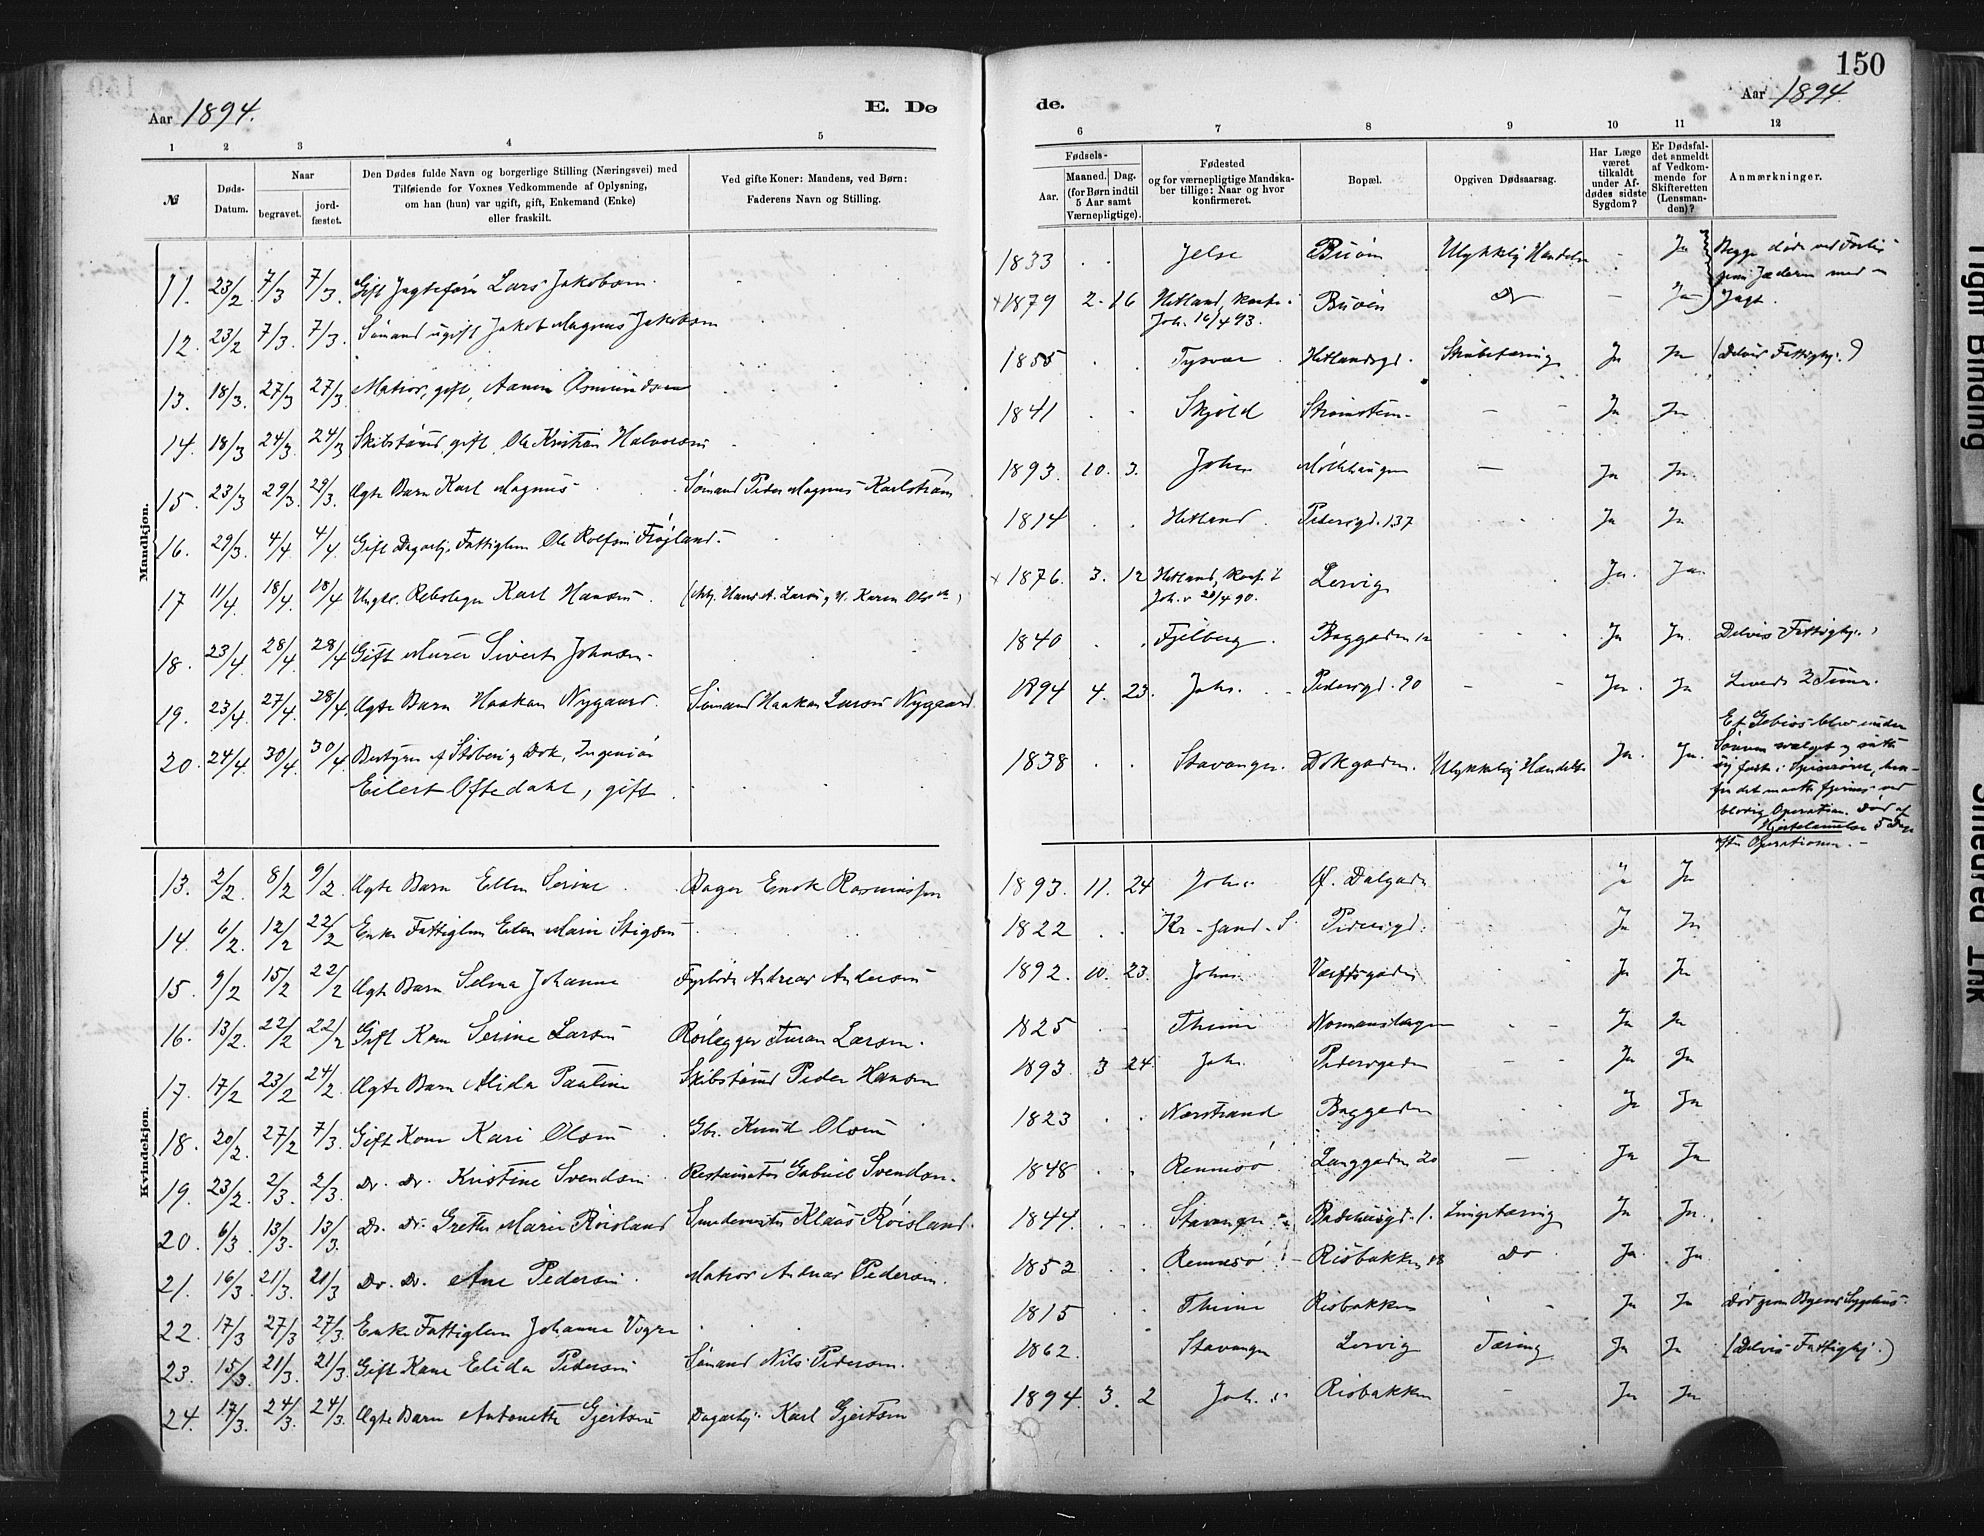 150
Aar 1894.
E. Dø
de.
Aar 1894.
1 2 3 4 5
6 7 8 9 10 11 12
№
Døds-Datum.
Naar
begravet.
jord-fæstet.
Den Dødes fulde Navn og borgerlige Stilling (Næringsvei) med
Tilføiende for Voxnes Vedkommende af Oplysning,
om han (hun) var ugift, gift, Enkemand (Enke)
eller fraskilt.
Ved gifte Koner: Mandens, ved Børn:
Faderens Navn og Stilling.
Fødsels-
Aar.
Maaned. Dag.
(for Børn indtil
5 Aar samt
Værnepligtige).
Fødested
og for værnepligtige Mandska-
ber tillige: Naar og hvor
konfirmeret.
Bopæl.
Opgiven Dødsaarsag.
Har Læge
været
tilkaldt
under Af-
dødes sidste
Sygdom?
Er Dødsfal-
det anmeldt
af Vedkom-
mende for
Skifteretten
(Lensman-
den)?
Anmærkninger.
Mandkjøn.
11. 23/2 7/3 7/3. Gift Jagtefører Lars Jakobsen. 1833 Jelse Buøen Ulykkelig Hændelse Ja Begge døde ved
12. 23/2 7/3. 7/3. Sømand ugift Jakob Magnus Jakobsen 1879 2. 16 Hetland, konf. i Joh. 16/4 93. Buøen Do Ja Jagt.
13. 18/3. 27/3 27/3. Matros, gift, Asmundsen 1855 Tysvær Hetlandsgd. Strubetæring Ja Ja (Delvis Fattighj.)
14. 18/3 24/3. 24/3 Skibstømd, gift, Ole Kristian Halvorsen 1841 Skjold Strømsteen Ja Ja
15. 23/3 29/3 29/3. Ægte Barn Karl Magnus Sømand Peder Magnus Karlstrøm 1893 10. 3. Joh. Møllehaugen Ja Ja
16. 29/3. 4/4. 4/4. Gift Dagarb. Fattiglem Ole Rolfsen Frøyland. 1814 Hetland Pedersgd. 137 Ja Ja
17 11/4. 18/4. 18/4 Ungk. Rebslager Karl Hansen 1876. 3. 12 Hetland, konf. i Joh. 20/4 90. Lervig Ja. Ja.
18. 23/4 28/4 28/4 Gift Murer Sivert Johnsen. 1840 Fjelberg Baggaden 12 Ja Ja. Delvis Fattighj.
19. 23/4. 27/4. 28/4. Ægte Barn Haakon Nygaard. Sømand Haakon Larsen Nygaard 1894 4. 23. Joh. Pedersgd. 90 Ja. Ja Levede 2 Timer.
20. 24/4. 30/4. 30/4. Bestyrer af Støberi og Dok, Ingeniør
Eilert Oftedahl, gift. 1838 Stavanger Dokgaden. Ulykkelig Hændelse Ja. Ja. Et Gebis blev under
Søvnen svælget og satte
sig fast i Spiserøret, hvor-
for det maatte fjernes ved
blodig Operation. Død af
Hjertelammelse 5 Dage
efter Operationen.
Kvindekjøn.
13. 2/2. 8/2 9/2 Ægte Barn Ellen Serine Bager Enok Rasmussen 1893. 11. 24 Joh. Ø. Dalgaden Ja Ja
14. 6/2. 12/2 22/2 Enke Fattiglem Ellen Marie Stigsen 1822 Kr-sand. S. Pedersgd. Ja Ja
15. 9/2 15/2 22/2 Ægte Barn Selma Johanne Fyrbøder Andreas Andersen 1892. 10. 23. Joh. Værftsgaden Ja Ja
16. 13/2. 22/2 22/2 Gift Kone Serine Larsen Rørlægger Larsen. 1825 Thime Ja Ja
17. 17/2 23/2 24/2. Ægte Barn Alida Pauline Skibstømd Peder Hansen 1893. 3 24. Joh. Pedersgaden Ja Ja
18. 20/2. 27/2 7/3. Gift Kone Kari Olsen Gbr. Knud Olsen 1823 Nærstrand Baggaden Ja Ja
19. 23/2. 2/3. 2/3. Do. Do. Kristine Svendsen Restauratør Gabriel Svendsen. 1848 Rennesø Langgaden 20 Ja Ja
20. 6/3. 13/3. 13/3. Do. Do. Grethe Marie Røisland Klaus Røisland. 1844. Stavanger Badehusgd. 1. Lungetæring Ja Ja.
21. 16/3. 21/3. 21/3 Do. Do. Ane Pedersen. Matros Pedersen. 1852 Rennesø Risbakken 18 Do Ja. Ja.
22. 17/3 27/3 27/3. Enke Fattiglem Johanne 1815 Thime Risbakken Ja Ja Død paa Byens Sygehus.
23. 15/3. 21/3. 21/3. Gift Kone Elida Pedersen Sømand Nils Pedersen. 1862. Stavanger Lervig Tæring Ja Ja (Delvis Fattighj.)
24. 17/3. 24/3. 24/3. Ægte Barn Antonette Gjertsen Dagarbj. Karl Gjertsen 1894. 3. 2 Joh. Risbakken Ja Ja
Tight Binding
Smeared Ink